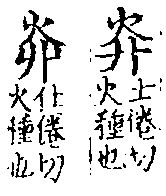 士倦切
火種也
仕倦切
火種也